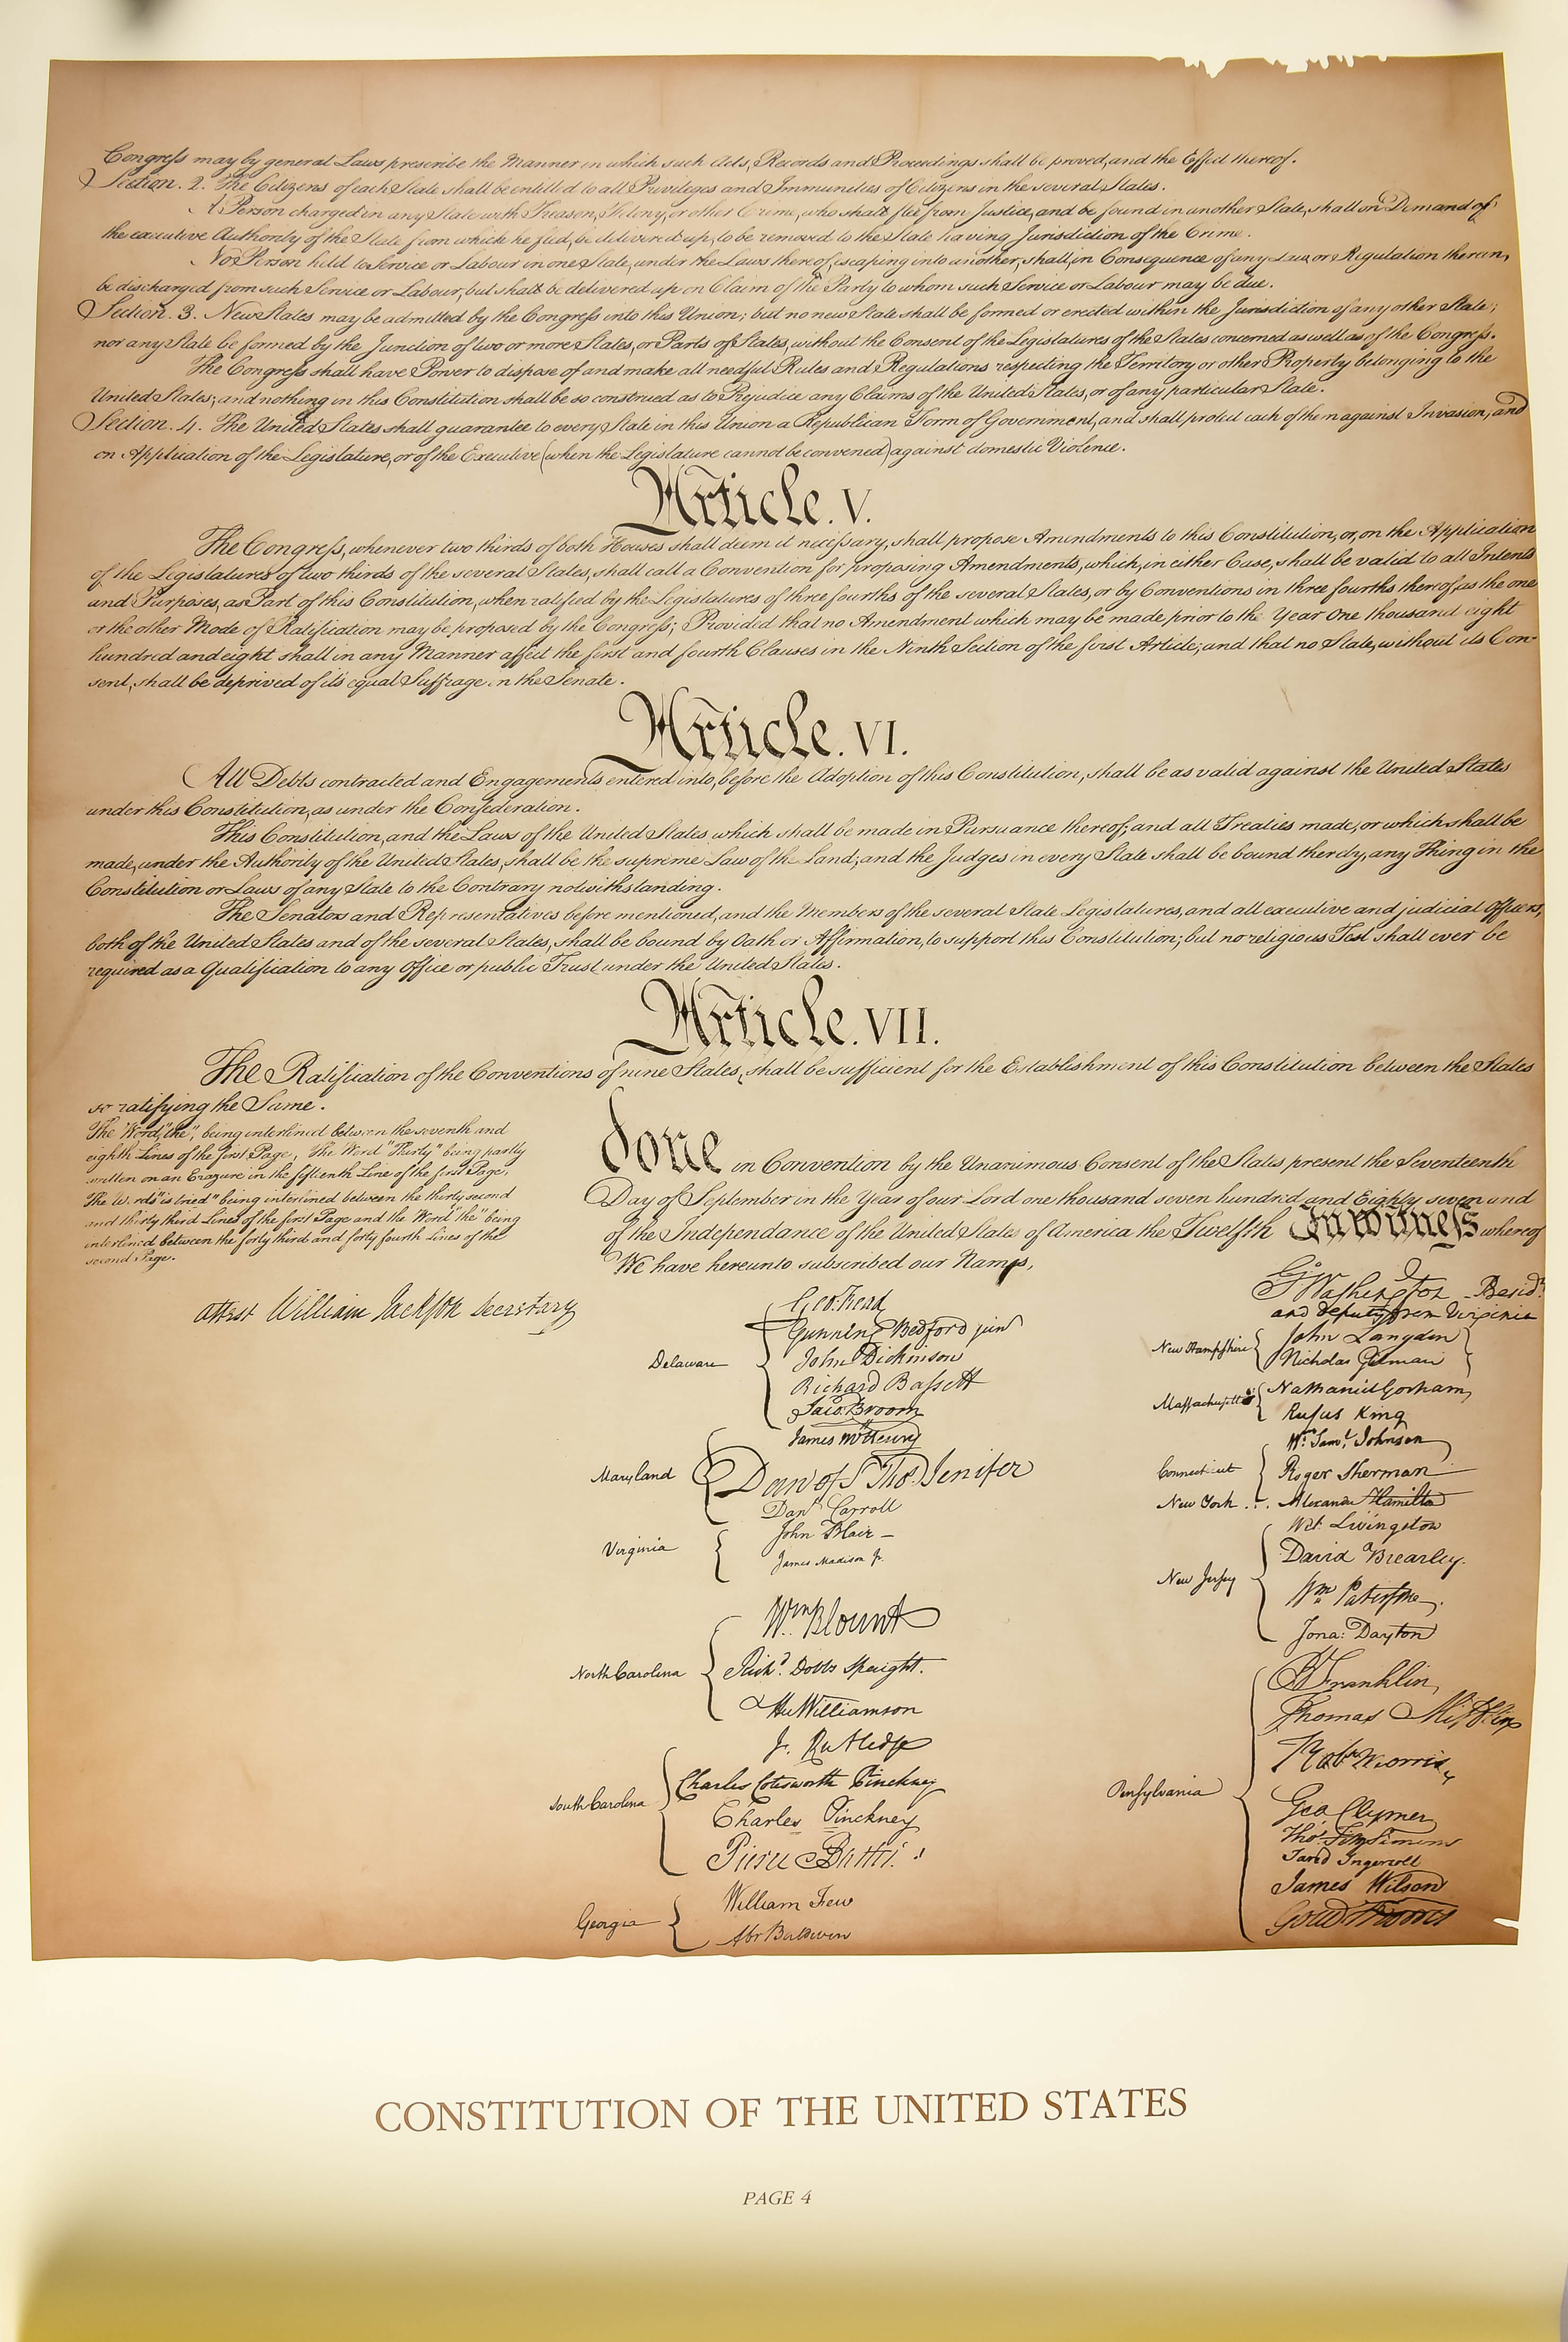 Congress may by general Laws prescribe the Manner in which such Acts, Records and Proceedings shall be proved, and the Effect thereof.
Section. 2. The Citizens of each State shall be entitled to all Privileges and Immunities of Citizens in the several States.
A Person charged in any State with Treason, Felony, or other Crime, who shall flee from Justice, and be found in another State, shall on Demand of
the executive Authority of the State from which he fled, be delivered up, to be removed to the State having Jurisdiction of the Crime.
No Person held to Service or Labour in one State, under the Laws thereof, escaping into another, shall, in Consequence of any Law or Regulation therein,
be discharged from such Service or Labour, but shall be delivered up on Claim of the Party to whom such Service or Labour may be due.
Section. 3. New States may be admitted by the Congress into this Union; but no new State shall be formed or erected within the Jurisdiction of any other State;
nor any State be formed by the Junction of two or more States, or Parts of States, without the Consent of the Legislatures of the States concerned as well as of the Congress.
The Congress shall have Power to dispose of and make all needful Rules and Regulations respecting the Territory or other Property belonging to the
United States; and nothing in this Constitution shall be so construed as to Prejudice any Claims of the United States, or of any particular State.
Section. 4. The United States shall guarantee to every State in this Union a Republican Form of Government, and shall protect each of them against Invasion; and
on Application of the Legislature, or of the Executive (when the Legislature cannot be convened) against domestic Violence.
Article. V.
The Congress, whenever two thirds of both Houses shall deem it necessary, shall propose Amendments to this Constitution, or, on the Application
of the Legislatures of two thirds of the several States, shall call a Convention for proposing Amendments, which, in either Case, shall be valid to all Intents
and Purposes, as Part of this Constitution, when ratified by the Legislatures of three fourths of the several States, or by Conventions in three fourths thereof, as the one
or the other Mode of Ratification may be proposed by the Congress; Provided that no Amendment which may be made prior to the Year One thousand eight
hundred and eight shall in any Manner affect the first and fourth Clauses in the Ninth Section of the first Article; and that no State, without its Con-
sent, shall be deprived of it's equal Suffrage in the Senate.
Article. VI.
All Debts contracted and Engagements entered into, before the Adoption of this Constitution, shall be as valid against the United States
under this Constitution, as under the Confederation.
This Constitution, and the Laws of the United States which shall be made in Pursuance thereof; and all Treaties made, or which shall be
made, under the Authority of the United States, shall be the supreme Law of the Land; and the Judges in every State shall be bound thereby, any Thing in the
Constitution or Laws of any State to the Contrary notwithstanding.
The Senators and Representatives before mentioned, and the Members of the several State Legislatures, and all executive and judicial Officers,
both of the United States and of the several States, shall be bound by Oath or Affirmation, to support this Constitution; but no religious Test shall ever be
required as a Qualification to any Office or public Trust under the United States.
Article. VII.
The Ratification of the Conventions of nine States, shall be sufficient for the Establishment of this Constitution between the States
so ratifying the Same.
The Word, "the," being interlined between the seventh and
eighth Lines of the first Page, The Word "Thirty" being partly
written on an Erazure in the fifteenth Line of the first Page,
The Words "is tried" being interlined between the thirty second
and thirty third Lines of the first Page and the Word "the" being
interlined between the forty third and forty fourth Lines of the
second Page.
Attest William Jackson Secretary
done in Convention by the Unanimous Consent of the States present the Seventeenth
Day of September in the Year of our Lord one thousand seven hundred and Eighty seven and
of the Independance of the United States of America the Twelfth In Witness whereof
We have hereunto subscribed our Names,
Delaware
Geo: Read
Gunning Bedford jun
John Dickinson
Richard Bassett
Jaco: Broom
Maryland
James McHenry
Dan of St Thos. Jenifer
Danl Carroll
Virginia
John Blair —
James Madison Jr.
North Carolina
Wm. Blount
Richd. Dobbs Spaight.
Hu Williamson
South Carolina
J. Rutledge
Charles Cotesworth Pinckney
Charles Pinckney
Pierce Butler.
Georgia
William Few
Abr Baldwin
Go. Washington - Presidt.
and deputy from Virginia
New Hampshire
John Langdon
Nicholas Gilman
Massachusetts
Nathaniel Gorham
Rufus King
Connecticut
Wm. Saml. Johnson
Roger Sherman
New York . . . Alexander Hamilton
New Jersey
Wil: Livingston
David Brearley.
Wm. Paterson.
Jona: Dayton
Pensylvania
B Franklin
Thomas Mifflin
Robt Morris
Geo. Clymer
Thos. FitzSimons
Jared Ingersoll
James Wilson
Gouv Morris
CONSTITUTION OF THE UNITED STATES
PAGE 4